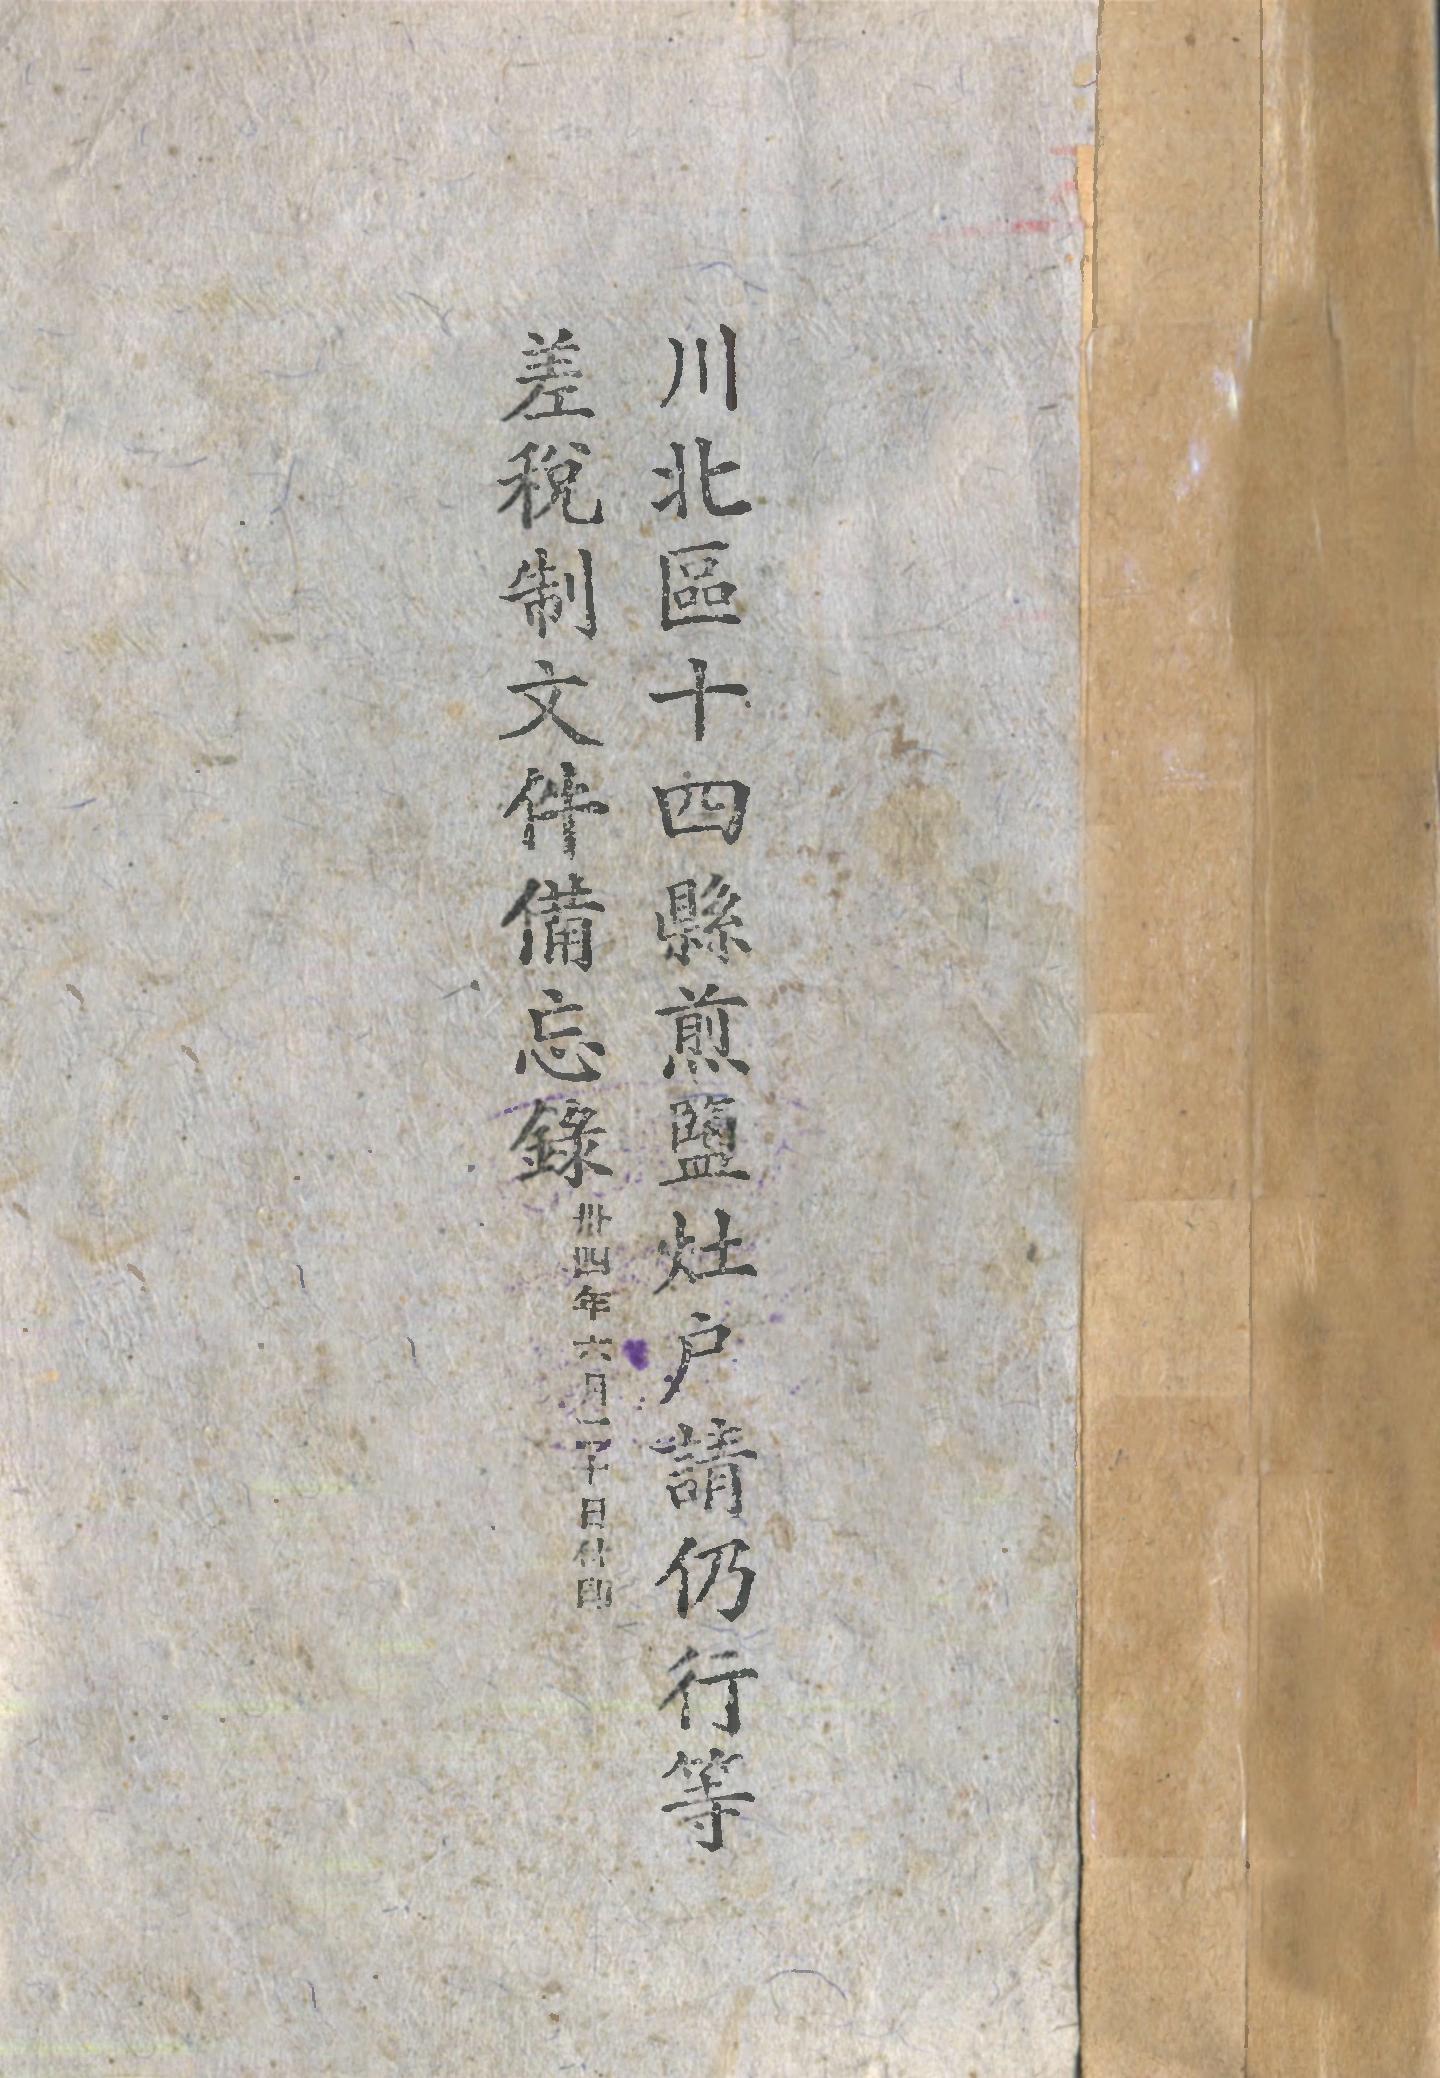 川北區十四縣煎鹽灶戶請仍行等
差稅制文件備忘錄
卅四年六月二十日付印